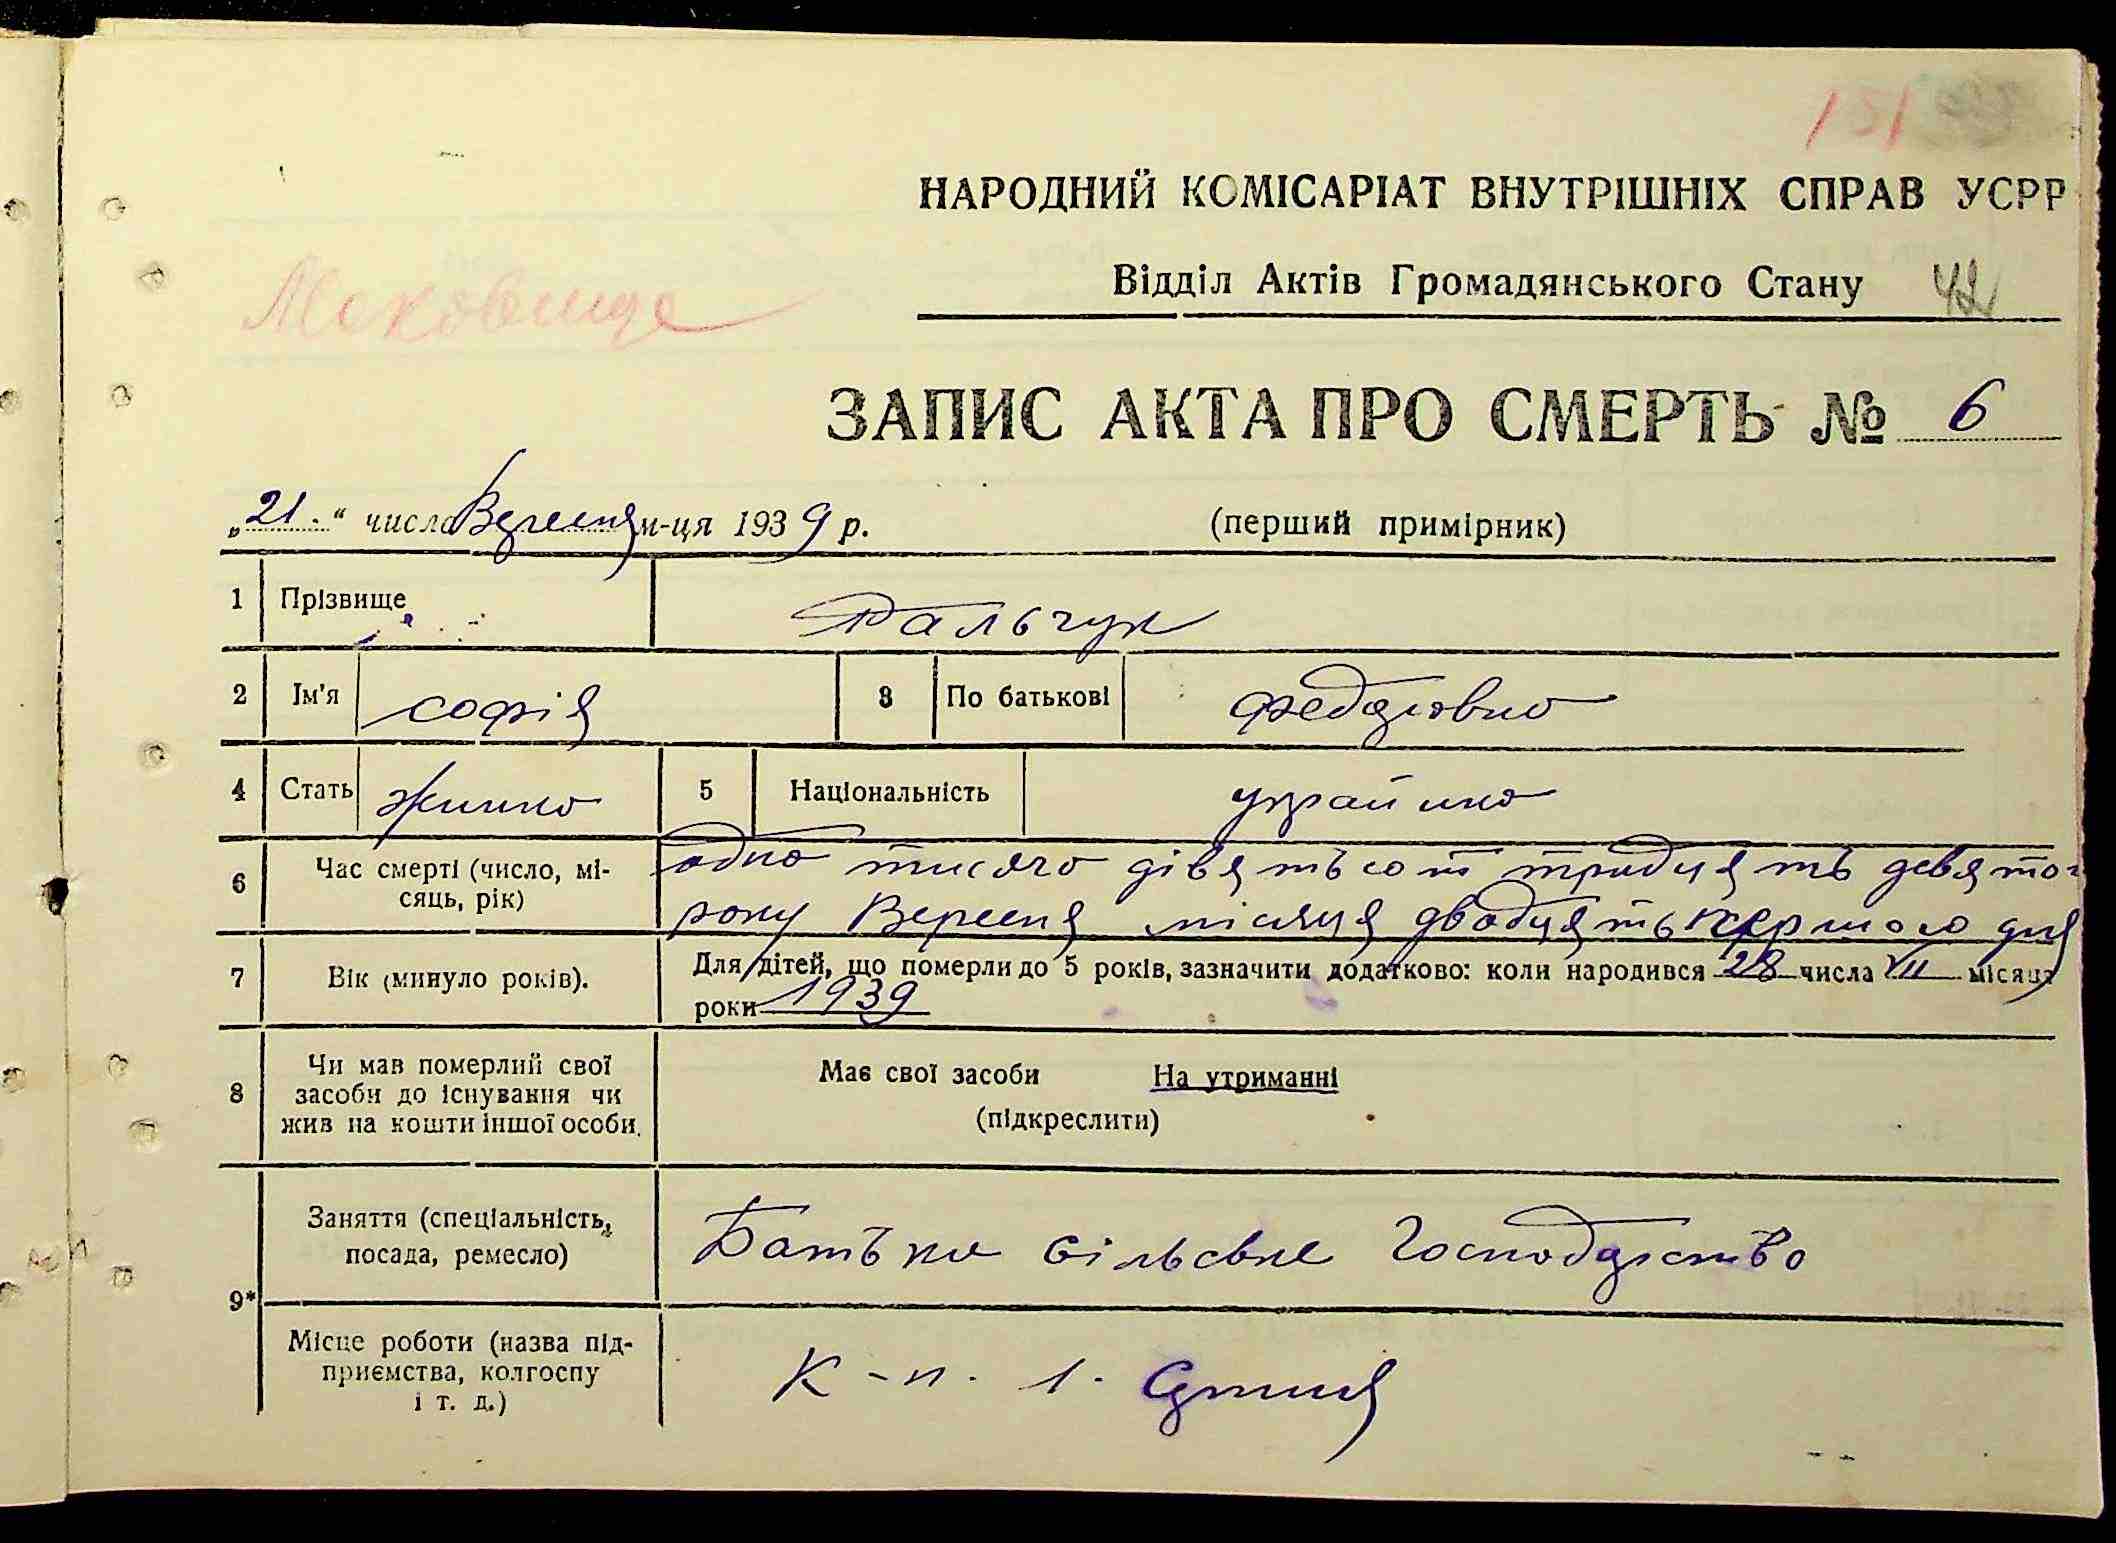 151
НАРОДНИЙ КОМІСАРІАТ ВНУТРІШНІХ СПРАВ УСРР
Відділ Актів Громадянського Стану 42
Маковище
ЗАПИС АКТА ПРО СМЕРТЬ № 6
„21." числа Вересня м-ця 1939 р. (перший примірник)
1 Прізвище Фальчук
2 Ім'я софія 3 По батькові федоровно
4 Стать жинко 5 Національність украйнко
6 Час смерті (число, мі-
сяць, рік)
одно тисячо дівятьсот тридцять девято
року Вересня місяця двадцять першого дня
7 Вік (минуло років). Для дітей, що померли до 5 років, зазначити додатково: коли народився 28 числа VII місяця
роки 1939
8 Чи мав померлий свої
засоби до існування чи
жив на кошти іншої особи.
Має свої засоби На утриманні
(підкреслити)
9* Заняття (спеціальність,
посада, ремесло)
Батько сільське Господарство
Місце роботи (назва під-
приємства, колгоспу
і т. д.)
К-п. 1.